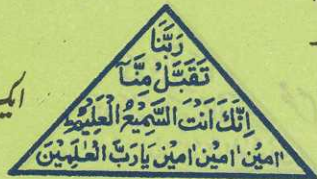 رَبَّنَا
تَقَبَّلْ مِنَّآ
اِنَّكَ اَنْتَ السَّمِيْعُ الْعَلِيْمُ
اٰمِيْن اٰمِيْن اٰمِيْن يَا رَبَّ الْعٰلَمِيْنَ